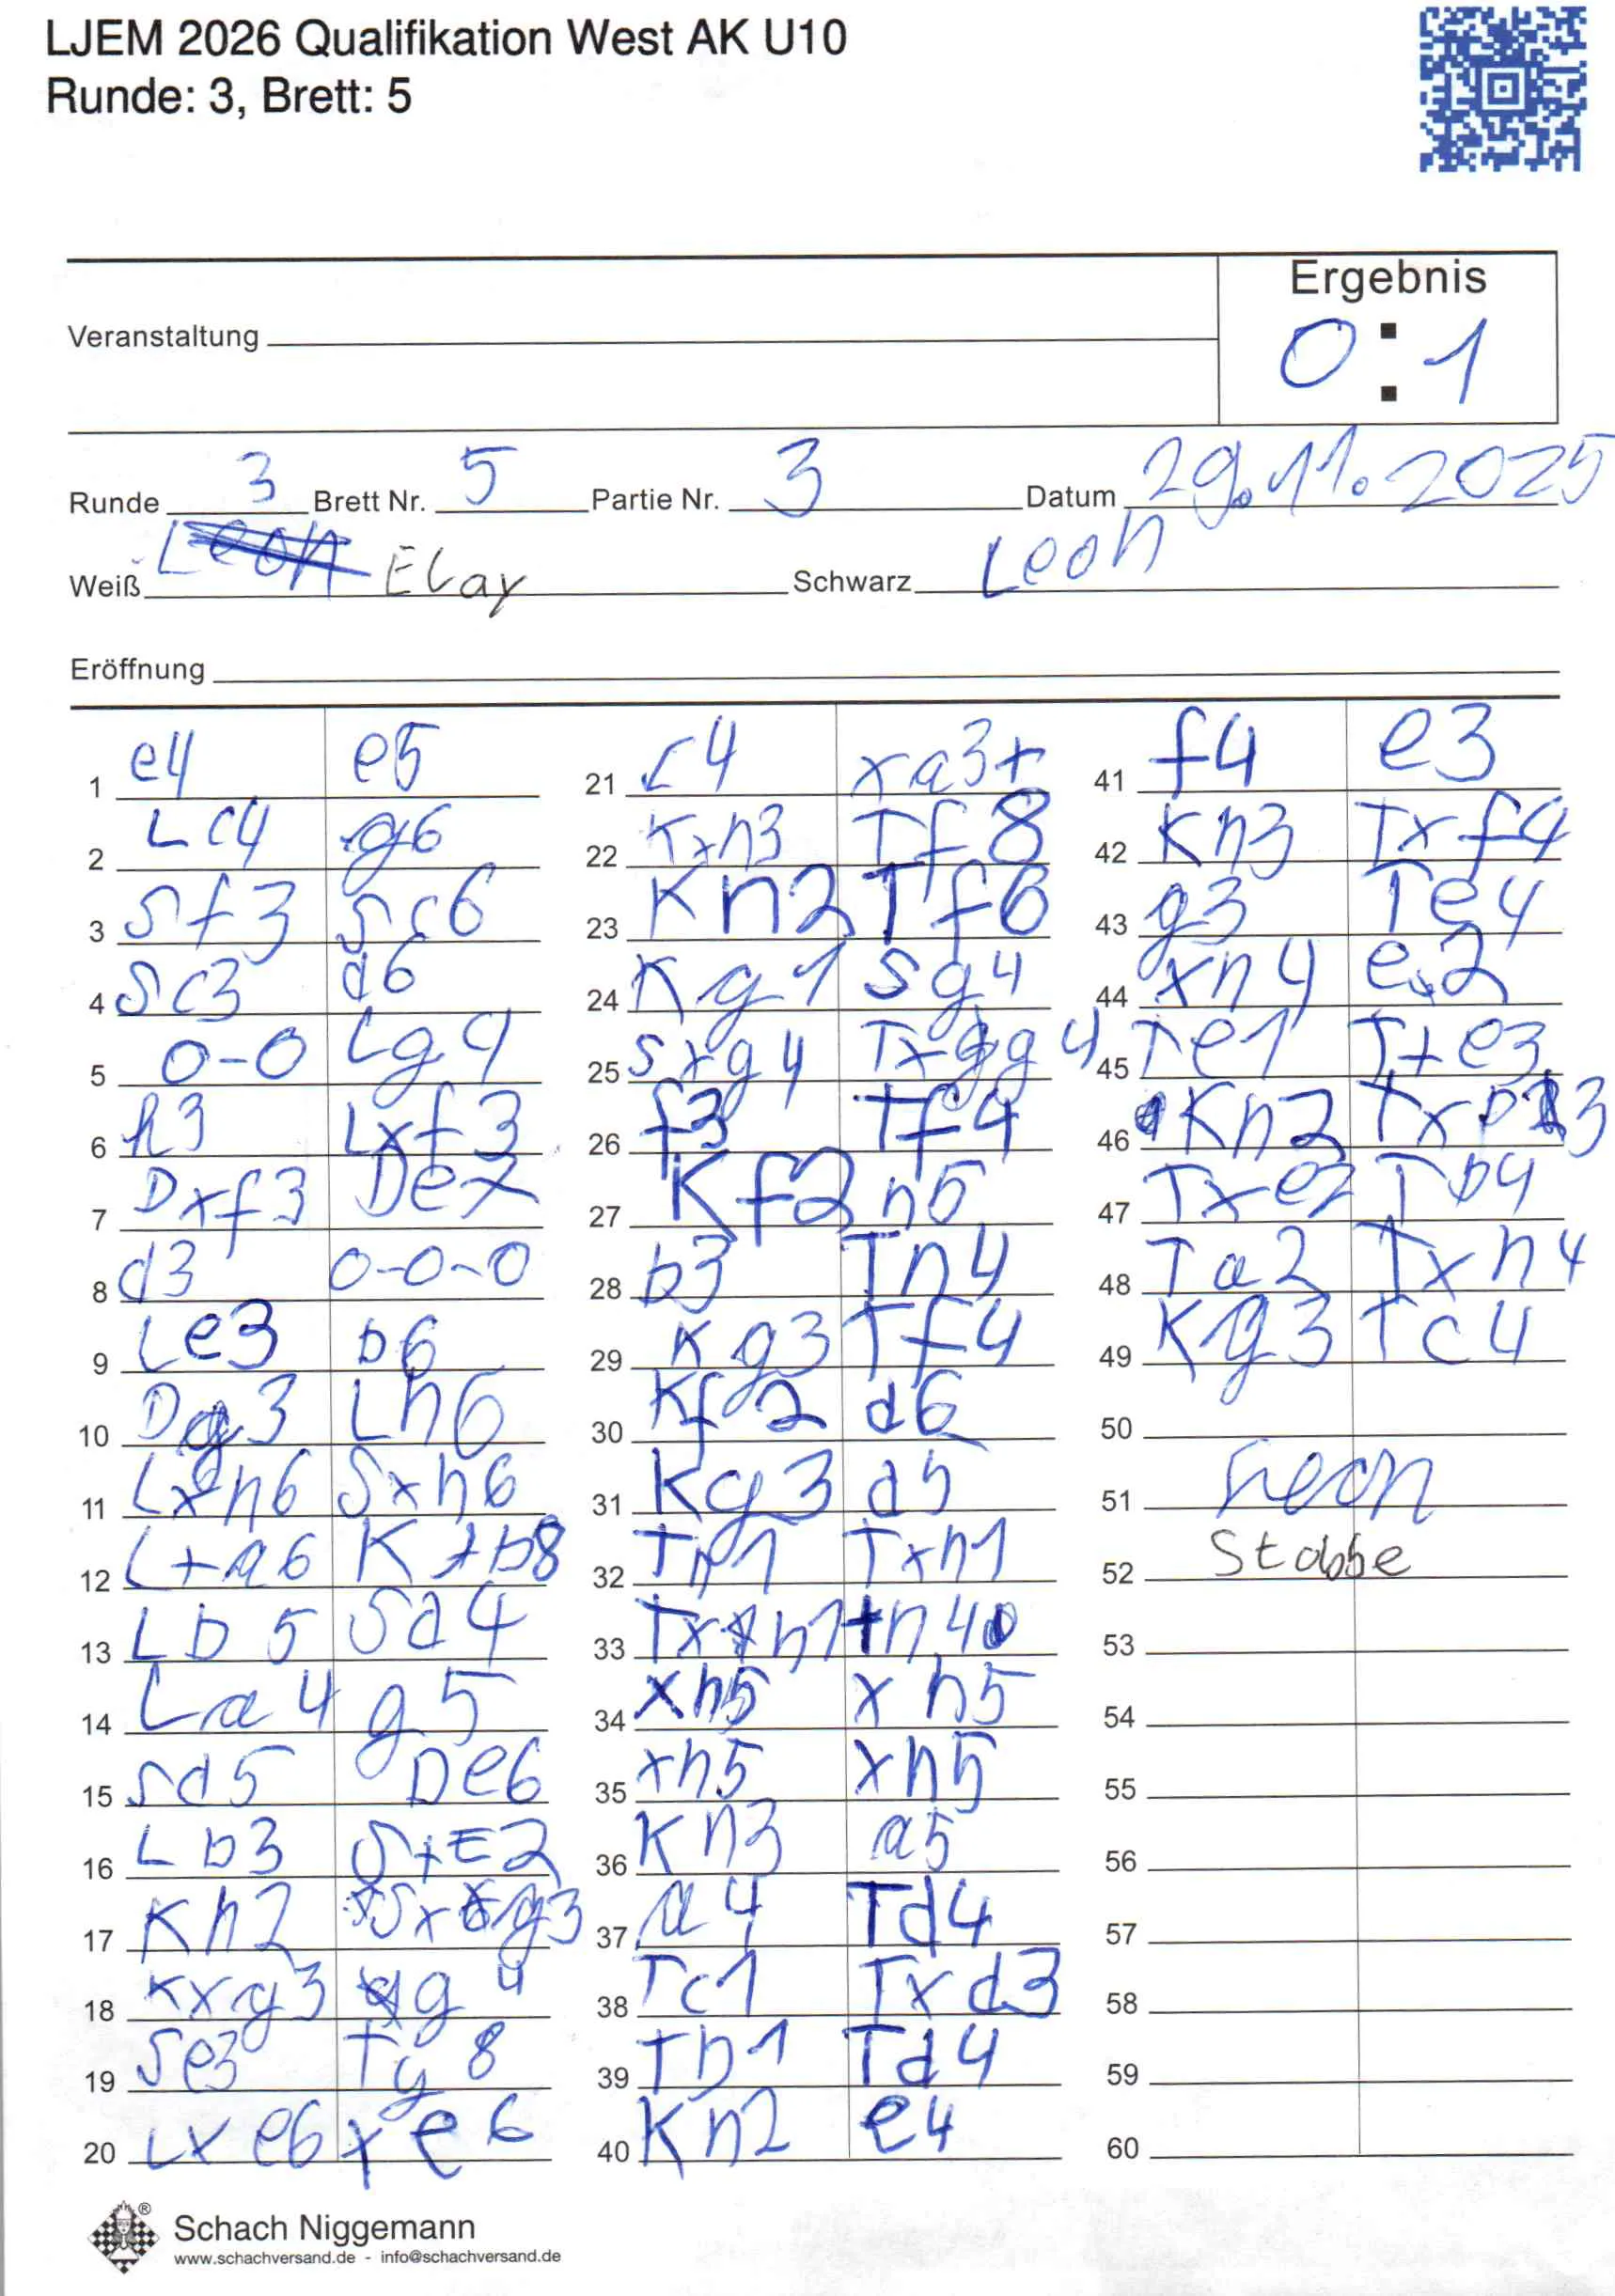 LJEM 2026 Qualifikation West AK U10
Runde: 3, Brett: 5
Ergebnis
Veranstaltung
0 : 1
Runde 3 Brett Nr. 5 Partie Nr. 3 Datum 29.11.2025
Weiß Elay Schwarz Leon
Eröffnung
1 e4 e5
2 Lc4 g6
3 Sf3 Sc6
4 Sc3 d6
5 0-0 Lg4
6 h3 Lxf3
7 Dxf3 De7
8 d3 0-0-0
9 Le3 b6
10 Dg3 Lh6
11 Lxh6 Sxh6
12 L+a6 K+b8
13 Lb5 Sd4
14 La4 g5
15 Sd5 De6
16 Lb3 S+E2
17 Kh2 Sxg3
18 Kxg3 g4
19 Se3 Tg8
20 Lxe6 xe6
21 c4 xa3+
22 Kxh3 Tf8
23 Kh2 Tf6
24 Kg1 Sg4
25 Sxg4 Txg4
26 f3 Tf4
27 Kf2 h5
28 b3 Th4
29 Kg3 Tf4
30 Kf2 d6
31 Kg3 d5
32 Th1 Txh1
33 Txh1 h4
34 xh5 xh5
35 xh5 xh5
36 Kh3 a5
37 a4 Td4
38 Tc1 Txd3
39 Tb1 Td4
40 Kh2 e4
41 f4 e3
42 Kh3 Txf4
43 g3 Te4
44 xh4 e2
45 Te1 T+e3
46 Kh2 Txb3
47 Txe2 Tb4
48 Ta2 Txh4
49 Kg3 Tc4
50
51 Leon
52 Stabbe
53
54
55
56
57
58
59
60
Schach Niggemann
www.schachversand.de - info@schachversand.de